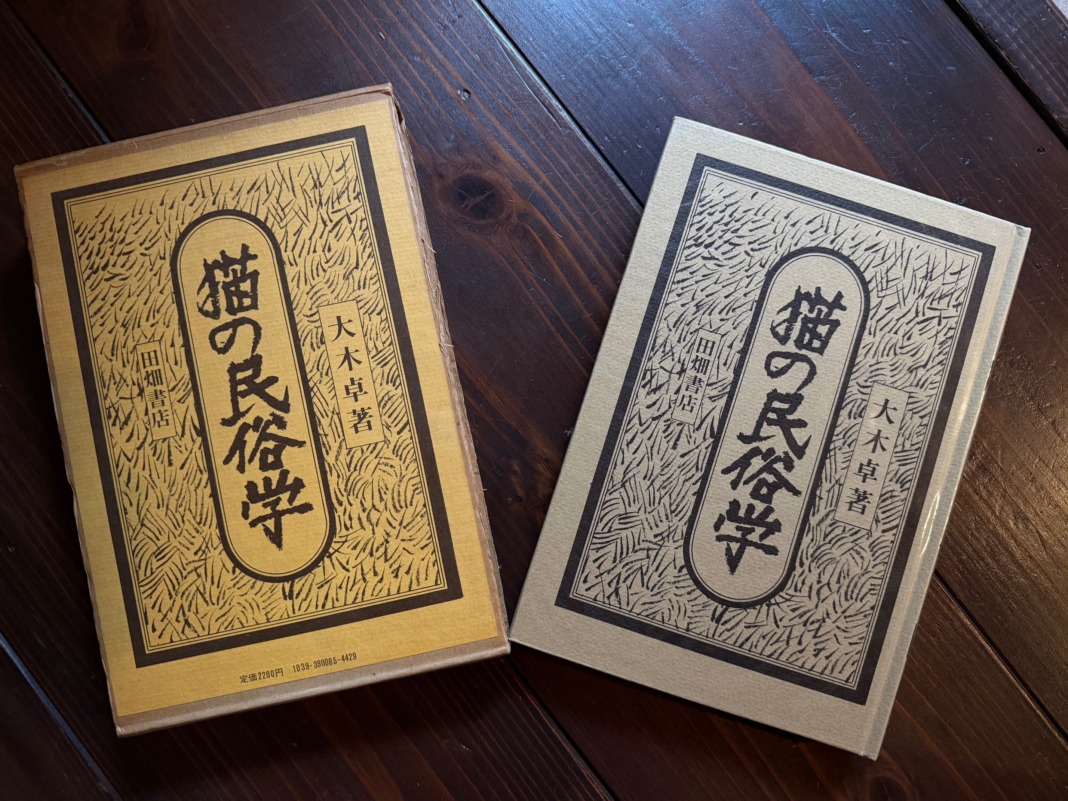 猫の民俗学
大木卓著
田畑書店
定価2200円 1039-390085-4429
猫の民俗学
大木卓著
田畑書店